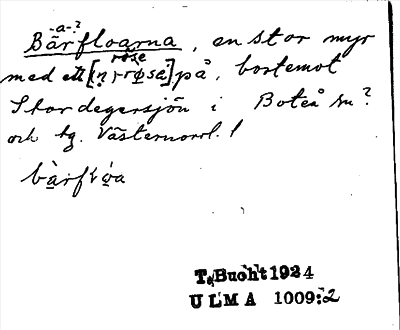 -a-?
Bärfloarna, en stor myr
röse
med ett [ṇ i-røsa] på, bortemot
Stor degersjön i Boteå sn?
och tg. Västernorrl. l
bärfḷöa
T. Bucht 1924
ULMA 1009:2